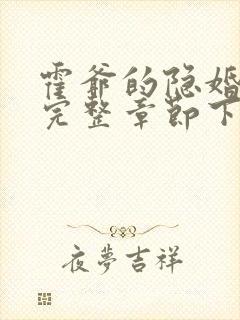 霍爷的隐婚
完整章节下
夜夢吉祥